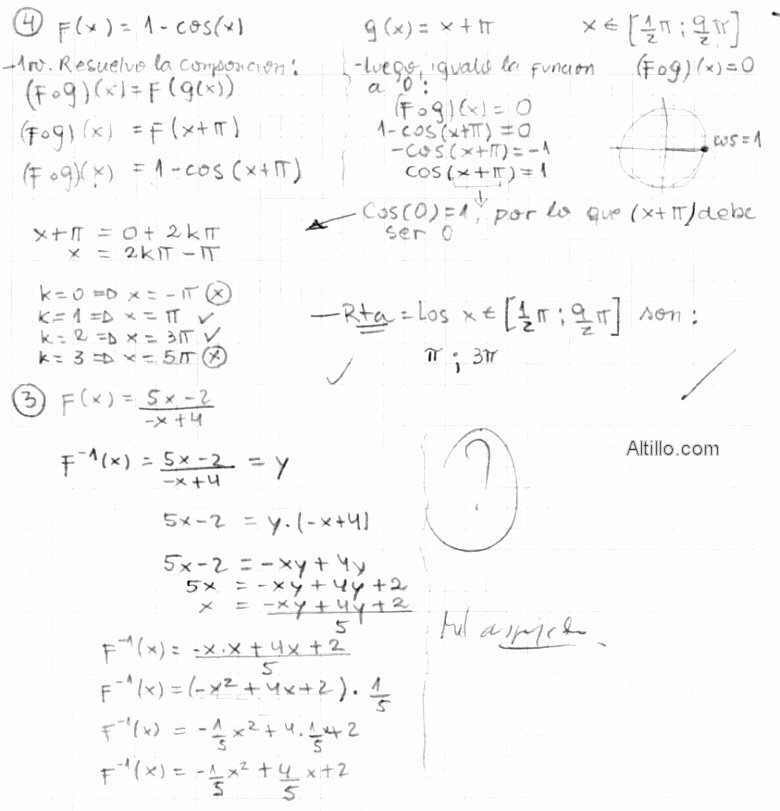 ④ F(x) = 1 - cos(x)   g(x) = x + π   x ∈ [1/2 π ; 9/2 π]
-1ro. Resuelvo la composición:
(F∘g)(x) = F(g(x))
(F∘g)(x) = F(x+π)
(F∘g)(x) = 1 - cos(x+π)
-luego, igualo la función (F∘g)(x) = 0
a '0':
(F∘g)(x) = 0
1 - cos(x+π) = 0
-cos(x+π) = -1
cos(x+π) = 1
cos = 1
Cos(0) = 1, por lo que (x+π) debe
ser 0
x + π = 0 + 2kπ
x = 2kπ - π
k = 0 => x = -π ⓧ
k = 1 => x = π ✓
k = 2 => x = 3π ✓
k = 3 => x = 5π ⓧ
- Rta = Los x ∈ [1/2 π ; 9/2 π] son:
π ; 3π
✓
③ F(x) = (5x - 2)/(-x + 4)
F⁻¹(x) = (5x - 2)/(-x + 4) = y
5x - 2 = y · (-x + 4)
5x - 2 = -xy + 4y
5x = -xy + 4y + 2
x = (-xy + 4y + 2)/5
F⁻¹(x) = (-x·x + 4x + 2)/5
F⁻¹(x) = (-x² + 4x + 2) · 1/5
F⁻¹(x) = -1/5 x² + 4 · 1/5 x + 2
F⁻¹(x) = -1/5 x² + 4/5 x + 2
?
Altillo.com